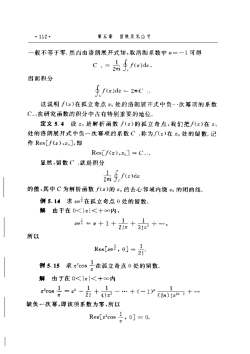 ·112· 第五章 留数及其应用
一般不等于零.然后由洛朗展开式知,取洛朗系数中 n=-1 可得
C₋₁ = 1/(2πi) ∮ f(z)dz,
因而积分
∮ f(z)dz = 2πiC₋₁
这说明 f(z)在孤立奇点 z₀ 处的洛朗展开式中负一次幂项的系数
C₋₁在研究函数的积分中占有特别重要的地位.
定义 5.4 设 z₀ 是解析函数 f(z)的孤立奇点,我们把 f(z)在 z₀
处的洛朗展开式中负一次幂项的系数 C₋₁ 称为 f(z)在 z₀ 处的留数.记
作 Res[f(z),z₀],即
Res[f(z),z₀] = C₋₁.
显然,留数 C₋₁ 就是积分
1/(2πi) ∮ f(z)dz
的值,其中 C 为解析函数 f(z)的 z₀ 的去心邻域内绕 z₀ 的闭曲线.
例 5.14 求
在孤立奇点 0 处的留数.
解 由于在 0<|z|<+∞内,
所以
例 5.15 求 z²cos 1/z 在孤立奇点 0 处的留数.
解 由于在 0<|z|<+∞内
缺失一次幂,即该项系数为零,所以
Res[z²cos 1/z, 0] = 0.